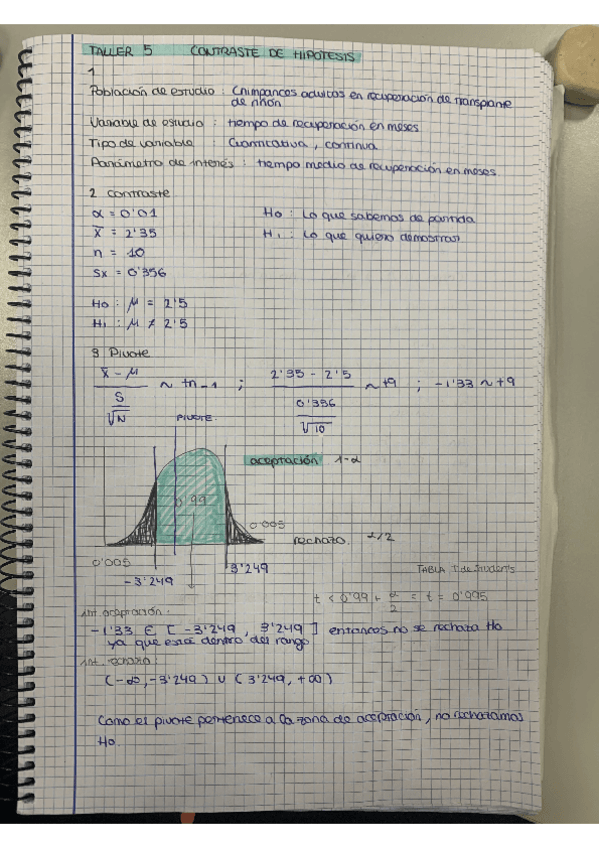 TALLER 5 CONTRASTE DE HIPOTESIS
1
Población de estudio : Chimpances adultos en recuperación de transplante
de riñón
Variable de estudio : tiempo de recuperación en meses
Tipo de variable : Cuantitativa, continua
Parámetro de interés : tiempo medio de recuperación en meses
2 contraste
α = 0'01 Ho : Lo que sabemos de partida
x̄ = 2'35 H1 : Lo que quiero demostrar
n = 10
Sx = 0'356
Ho : μ = 2'5
H1 : μ ≠ 2'5
3 Pivote
x̄ - μ / S/√N ~ tn-1 ; 2'35 - 2'5 / 0'356/√10 ~ t9 ; -1'33 ~ t9
PIVOTE
aceptación 1-α
0'99
0'005
rechazo α/2
0'005
-3'249
3'249
TABLA T de Students
t < 0'99 + α/2 = t = 0'995
Int aceptación :
-1'33 ∈ [ -3'249, 3'249 ] entonces no se rechaza Ho
ya que está dentro del rango
Int. rechazo :
(-∞, -3'249) ∪ (3'249, +∞)
Como el pivote pertenece a la zona de aceptación, no rechazamos
Ho.